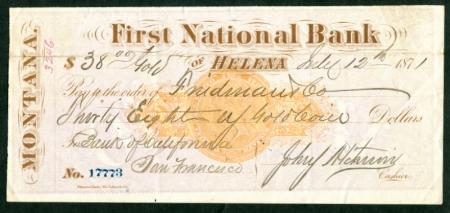 First National Bank
MONTANA.
3246
$ 38 00 Gold OF HELENA July 12th 1871
Pay to the order of Friedman & Co
Thirty Eight of Gold Coin Dollars
To Bank of California
San Francisco John
Cashier.
No. 17773